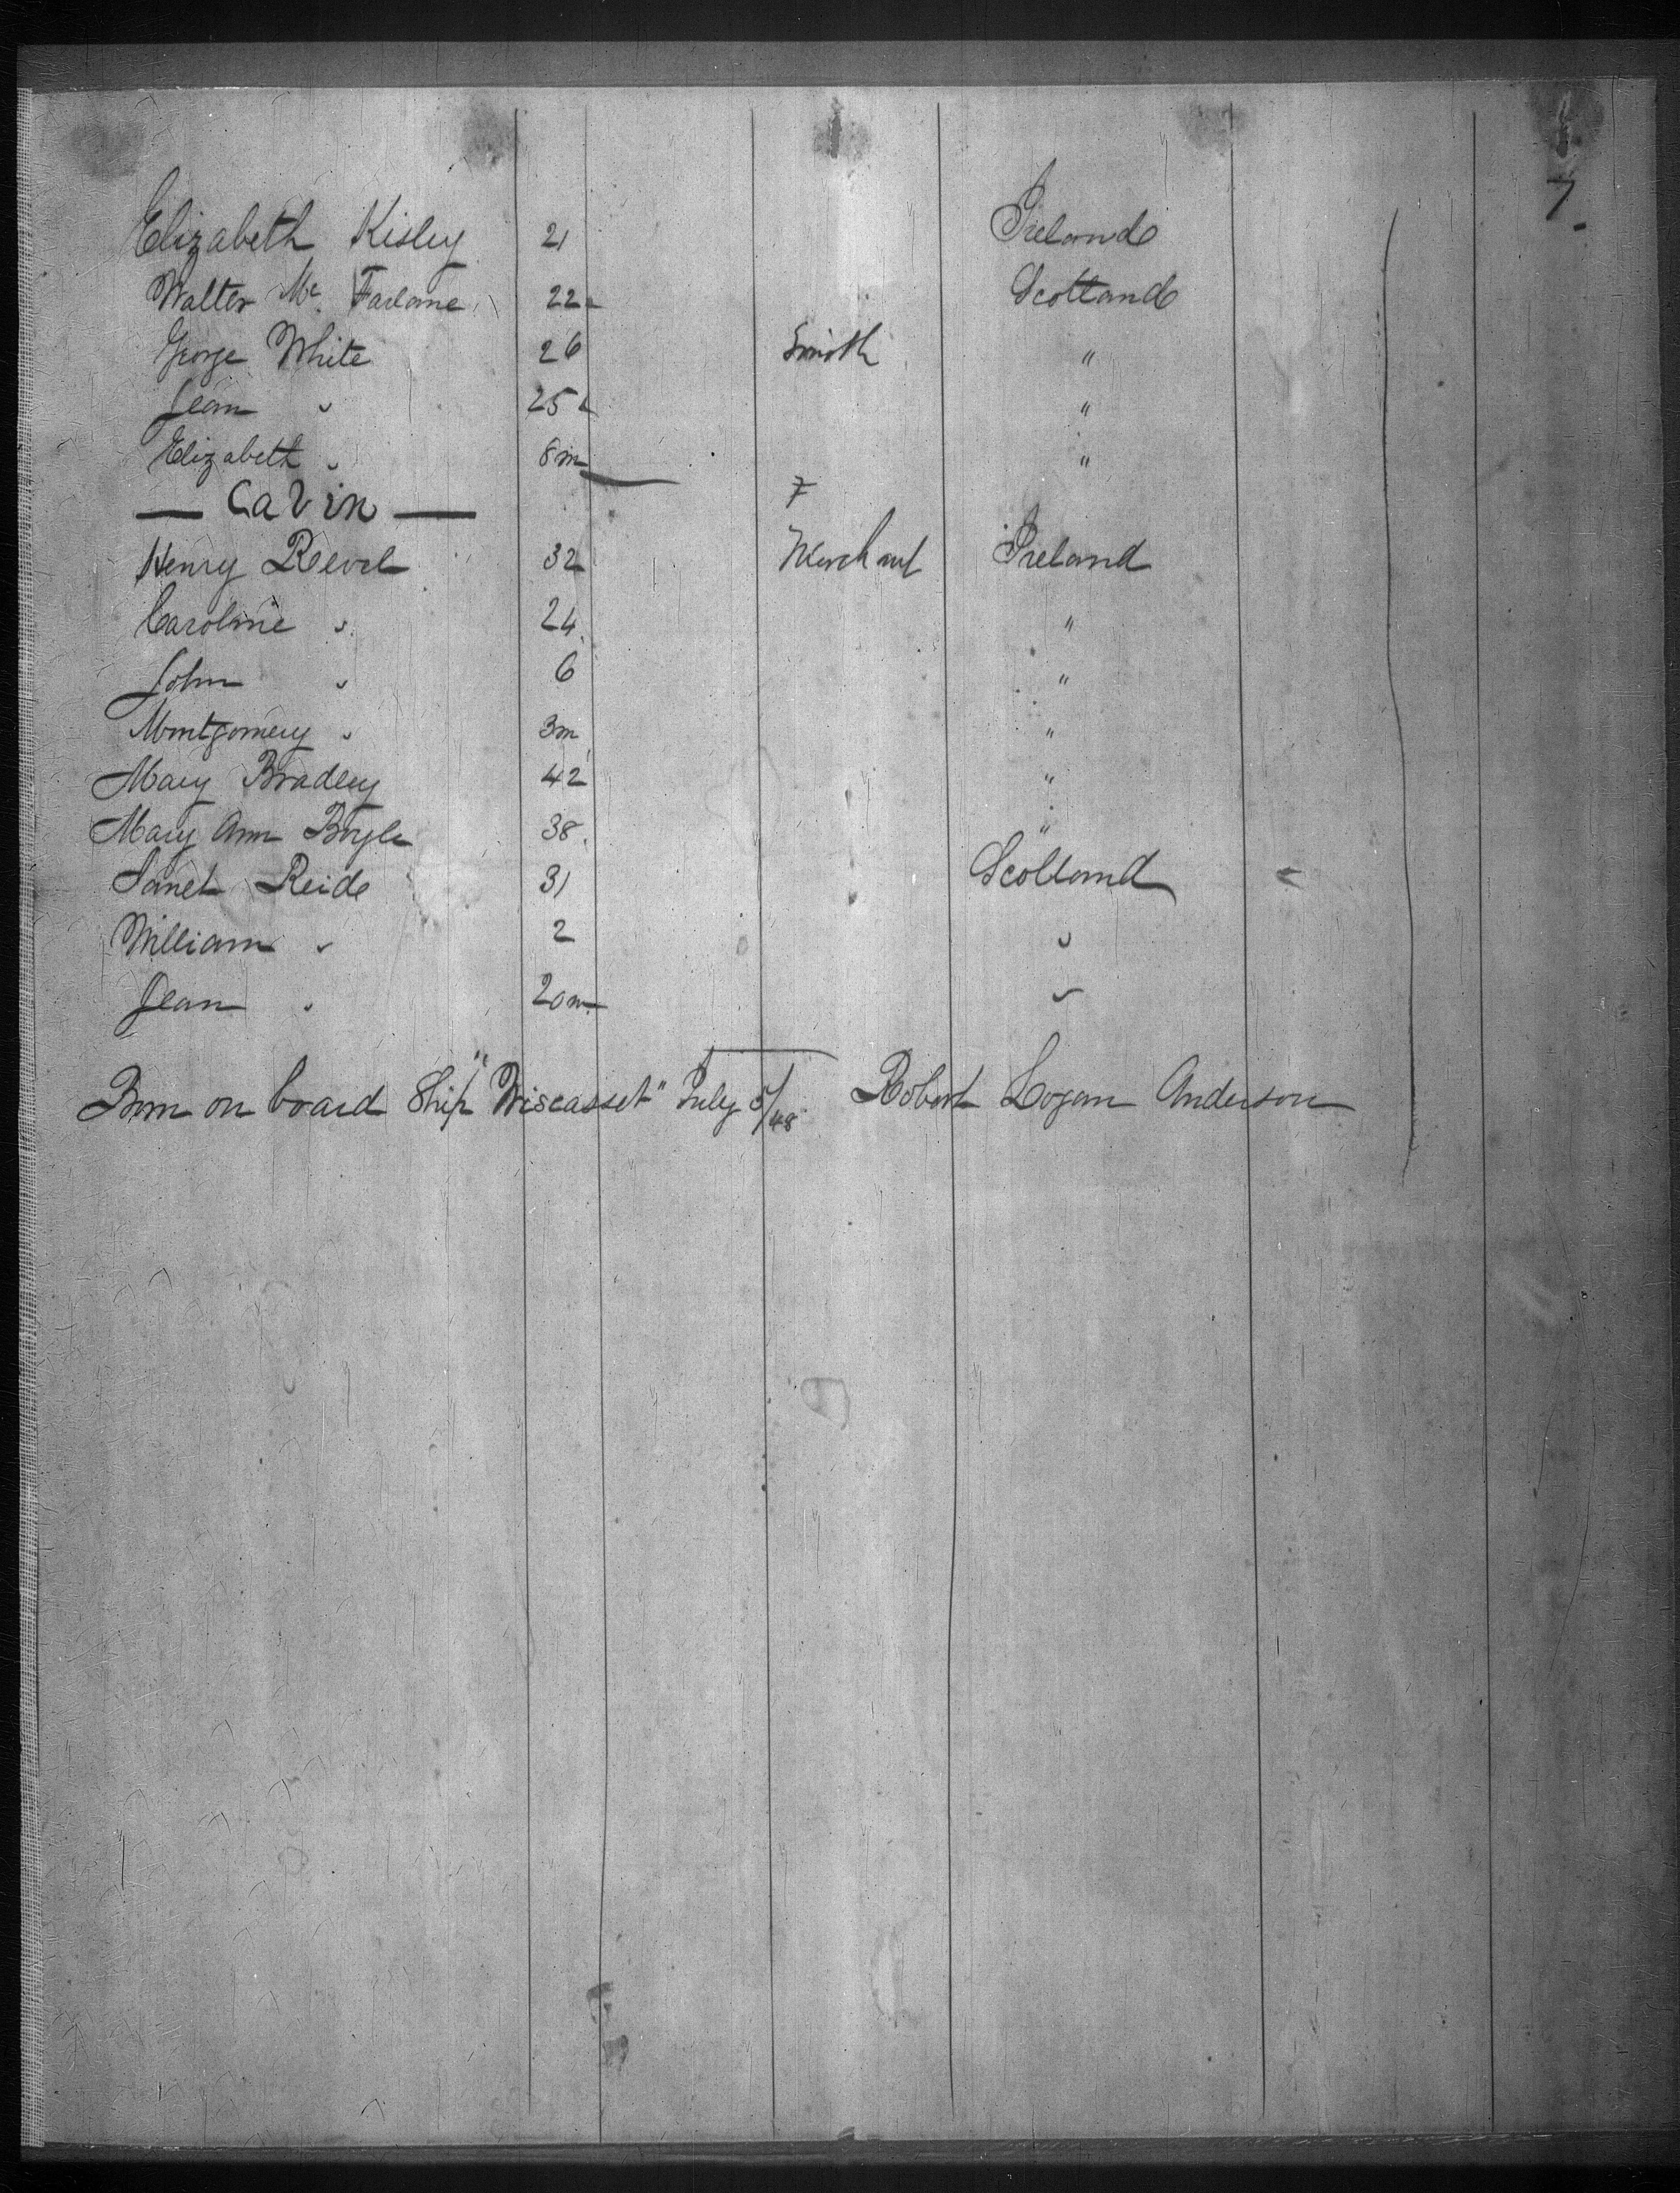 7
Elizabeth Kisley 21 Ireland
Walter Mc Farlane 22 Scotland
George White 26 Smith "
Jean " 25 "
Elizabeth " 8m "
— Cabin —
Henry 32 Merchant Ireland
Caroline " 24 "
John " 6 "
Montgomery " 3m "
Mary Bradley 42 "
Mary Ann Boyle 38 "
Janet Reid 31 Scotland
William " 2 "
Jean " 20m "
Born on board Ship "Wiscasset" July 5/48 Robert Logan Anderson